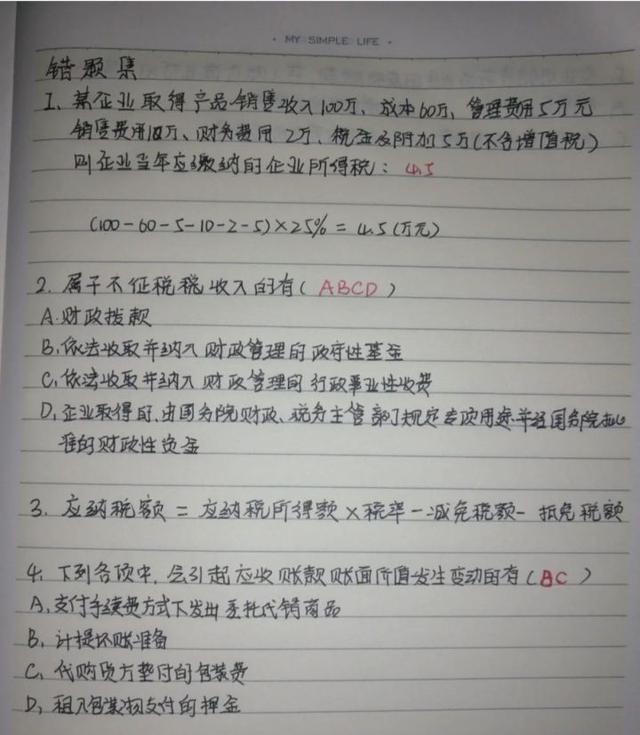 · MY SIMPLE LIFE ·
错题集
1、某企业取得产品销售收入100万、成本60万、管理费用5万元
销售费用10万、财务费用 2万、税金及附加5万(不含增值税)
则企业当年应缴纳的企业所得税：4.5
(100-60-5-10-2-5)×25% = 4.5 (万元)
2. 属于不征税税收入的有( ABCD )
A.财政拨款
B、依法收取并纳入财政管理的政府性基金
C、依法收取并纳入财政管理的行政事业性收费
D、企业取得的、由国务院财政、税务主管部门规定专项用途并经国务院批
准的财政性资金
3. 应纳税额 = 应纳税所得额×税率-减免税额- 抵免税额
4. 下列各项中，会引起应收账款账面价值发生变动的有( BC )
A、支付手续费方式下发出委托代销商品
B、计提坏账准备
C、代购货方垫付的包装费
D、租入包装物支付的押金